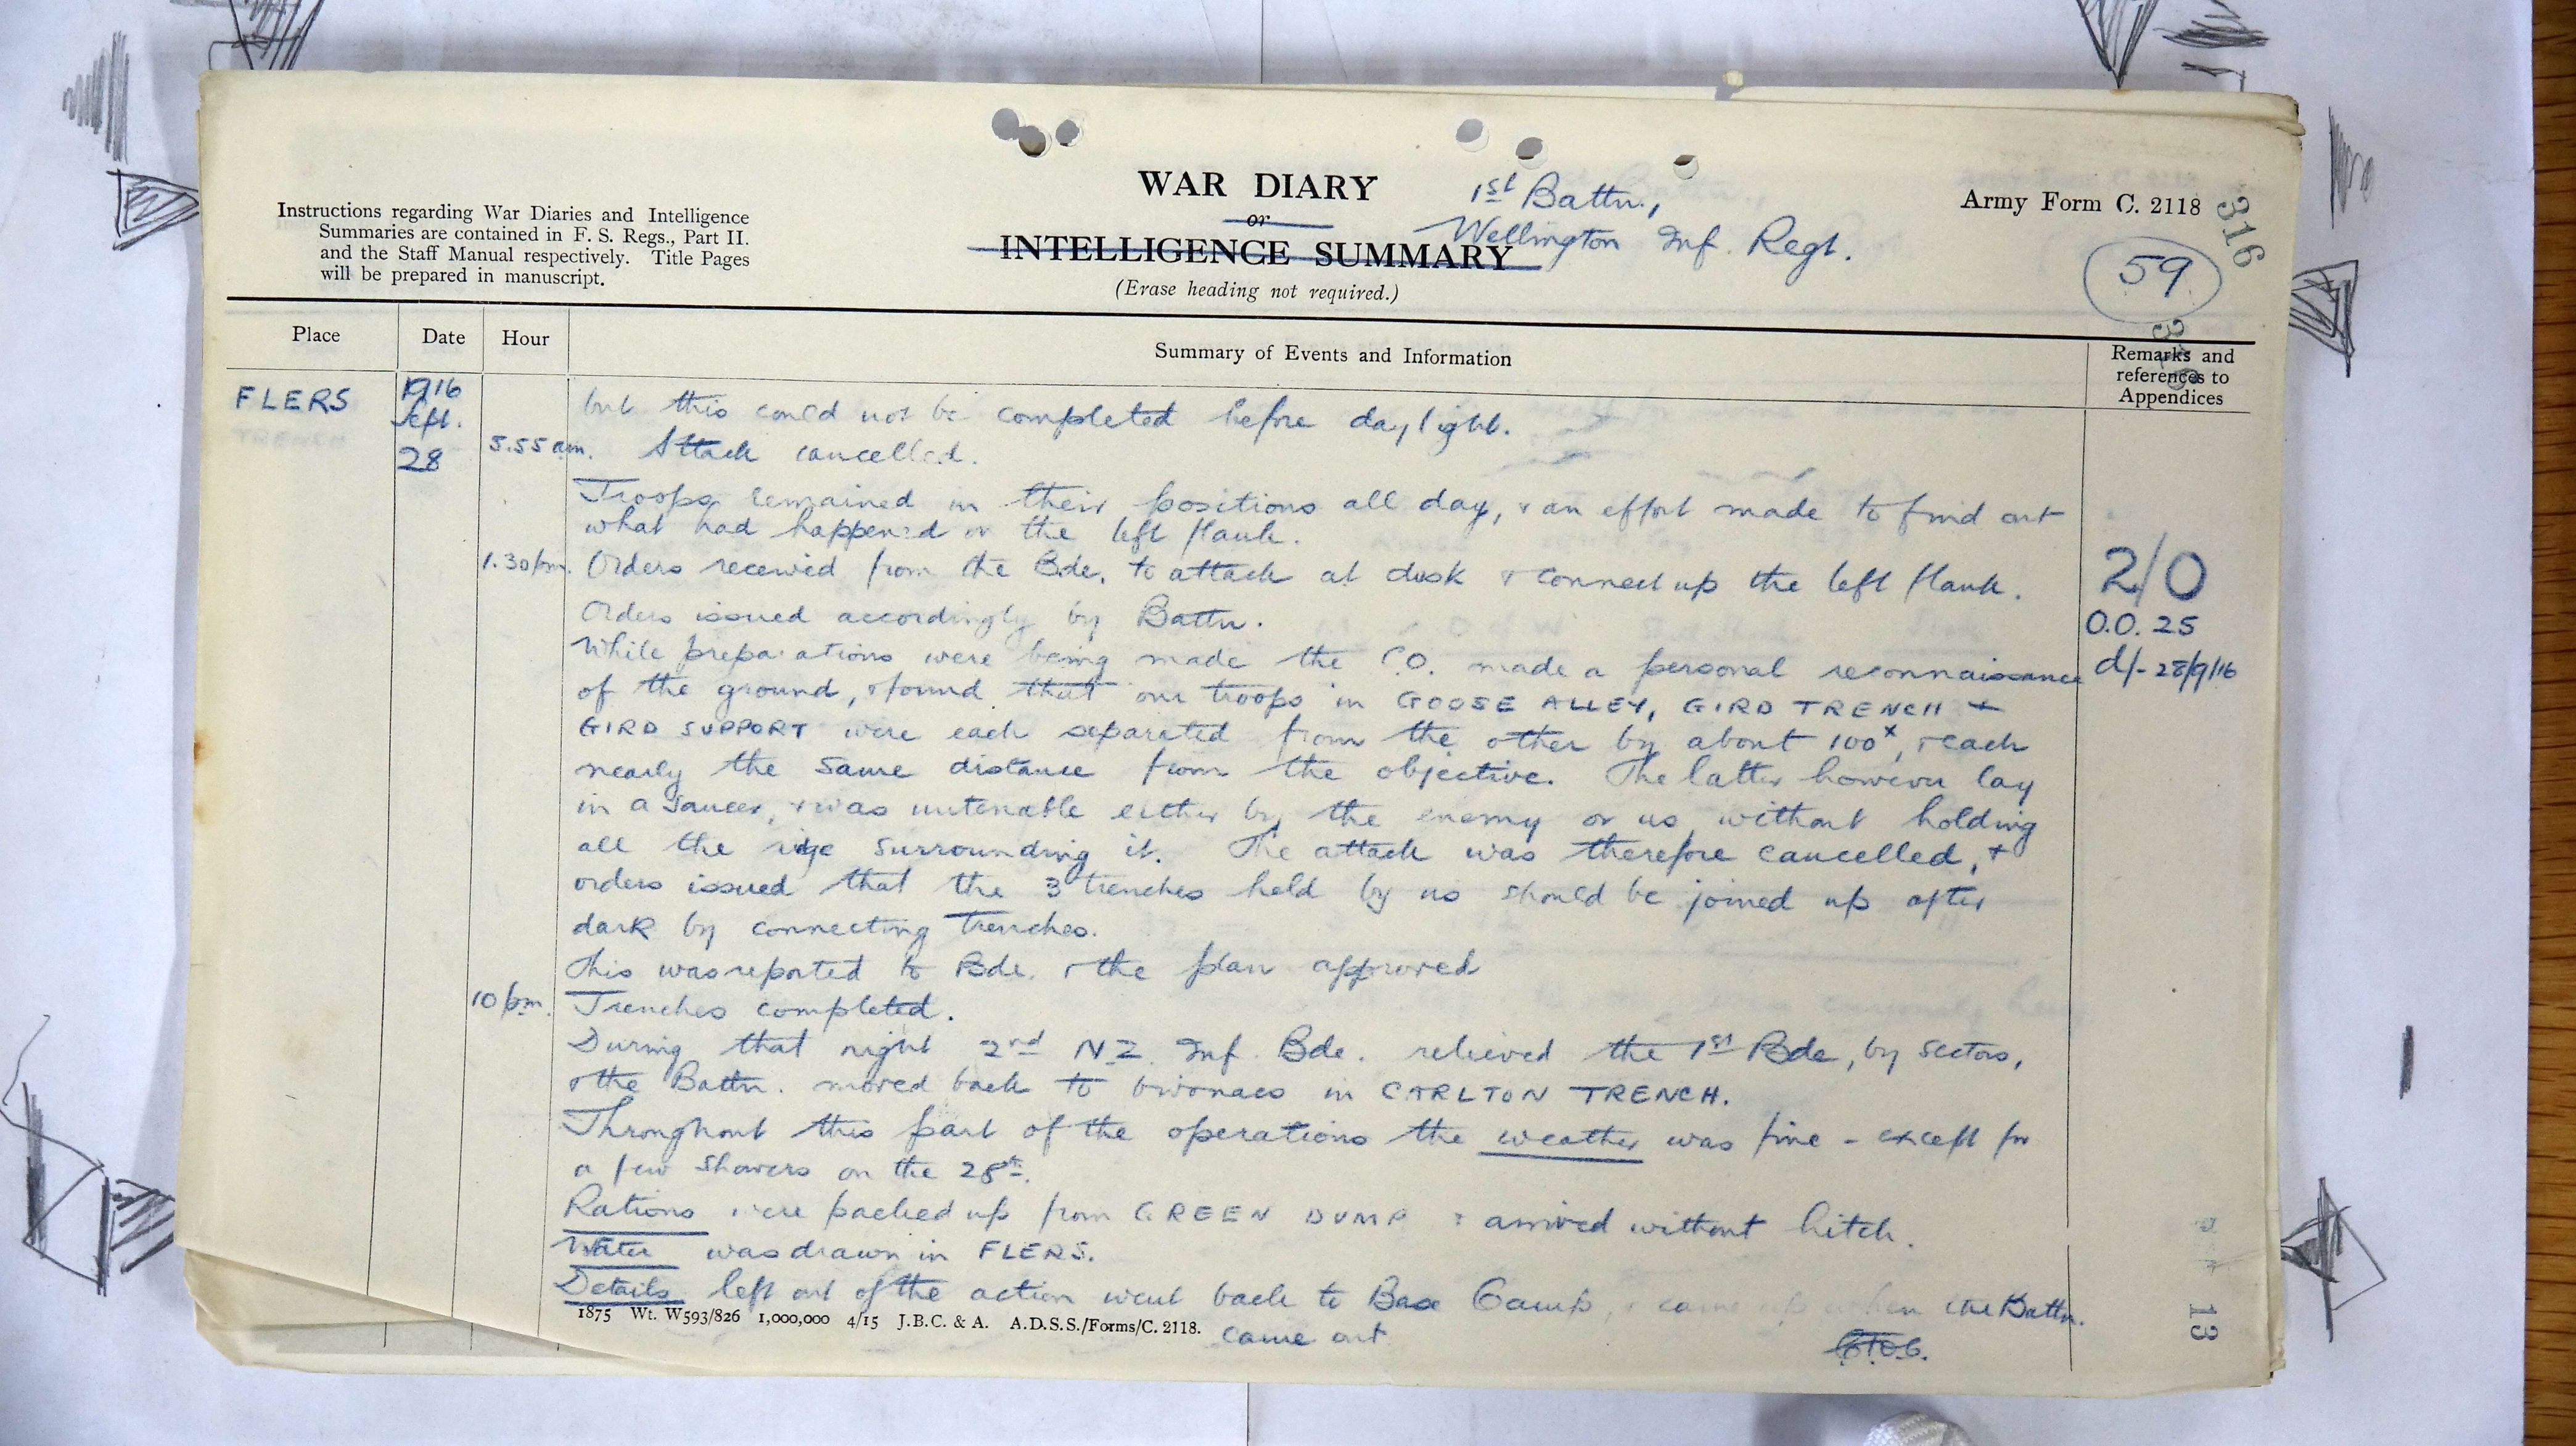 WAR DIARY
or
INTELLIGENCE SUMMARY
(Erase heading not required.)
1st Battn.,
Wellington Inf. Regt.
Instructions regarding War Diaries and Intelligence
Summaries are contained in F. S. Regs., Part II.
and the Staff Manual respectively. Title Pages
will be prepared in manuscript.
Army Form C. 2118
316
59
Place
Date
Hour
Summary of Events and Information
Remarks and
references to
Appendices
FLERS
TRENCH
1916
Sept.
28
but this could not be completed before daylight.
5.55 am. Attack cancelled.
Troops remained in their positions all day, & an effort made to find out
what had happened on the left flank.
1.30 pm. Orders received from the Bde. to attack at dusk & connect up the left flank.
Orders issued accordingly by Battn.
2/0
O.O. 25
d/- 28/9/16
While preparations were being made the CO. made a personal reconnaissance
of the ground, & found that our troops in GOOSE ALLEY, GIRD TRENCH +
GIRD SUPPORT were each separated from the other by about 100x, & each
nearly the same distance from the objective. The latter however lay
in a saucer, & was untenable either by the enemy or us without holding
all the ridge surrounding it. The attack was therefore cancelled, +
orders issued that the 3 trenches held by us should be joined up after
dark by connecting trenches.
This was reported to Bde. & the plan approved
10 pm. Trenches completed.
During that night 2nd NZ. Inf. Bde. relieved the 1st Bde, by sectors,
& the Battn. moved back to bivouacs in CARLTON TRENCH.
Throughout this part of the operations the weather was fine - except for
a few showers on the 28th.
Rations were packed up from GREEN DUMP & arrived without hitch.
Water was drawn in FLERS.
Details left out of the action went back to Base Camp, & came up when the Battn.
came out
1875 Wt. W593/826 1,000,000 4/15 J.B.C. & A. A.D.S.S./Forms/C. 2118.
13